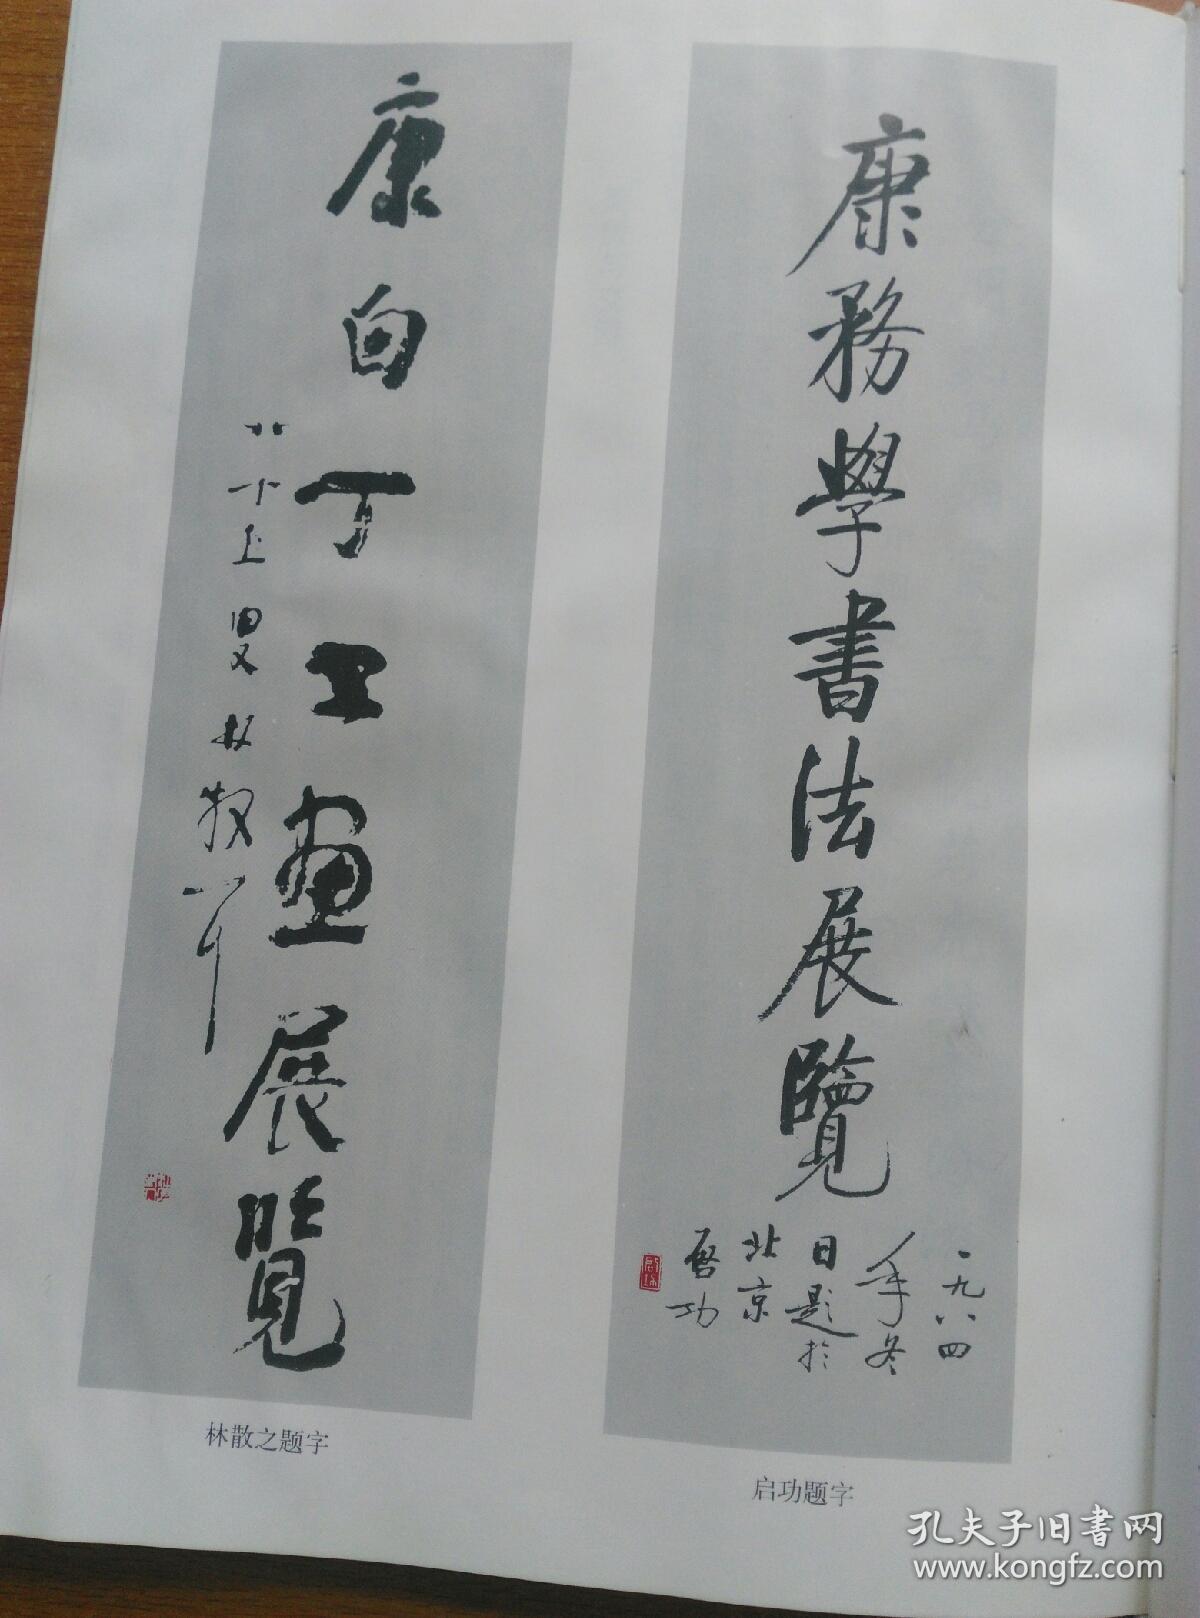 康務學書法展覽
一九八四
年冬
日題於
北京
啓功
启功题字
康白丁工画展覧
八十七叟林散耳
林散之题字
孔夫子旧書网
www.kongfz.com